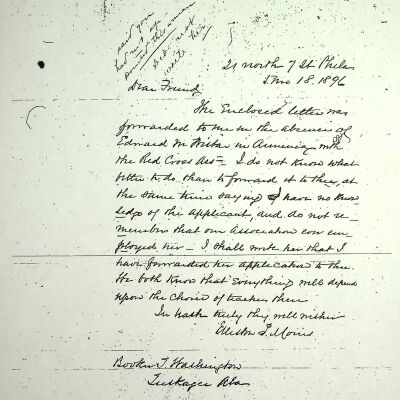 said you
had not ap
pointed this woman
did not
write her
21 north 7 St Phila
5 mo 18. 1896
Dear Friend
The Enclosed letter was
forwarded to me in the absence of
Edward M Wistar in Armenia with
the Red Cross Assn - I do not know what
better to do than to forward it to thee, at
the same time saying I have no know
ledge of the applicant, and do not re-
member that our Association ever em-
ployed her - I shall write her that I
have forwarded her application to thee
We both know that Everything will depend
upon the choice of teachers there
In haste truly thy well wisher
Elliston P. Morris
Booker T. Washington
Tuskegee Ala